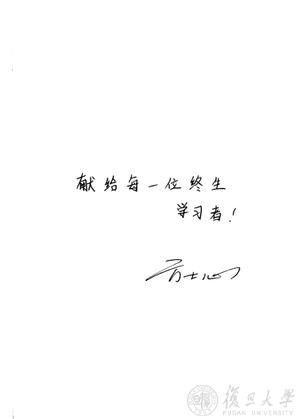 献给每一位终生
学习者！
復旦大學
FUDAN UNIVERSITY